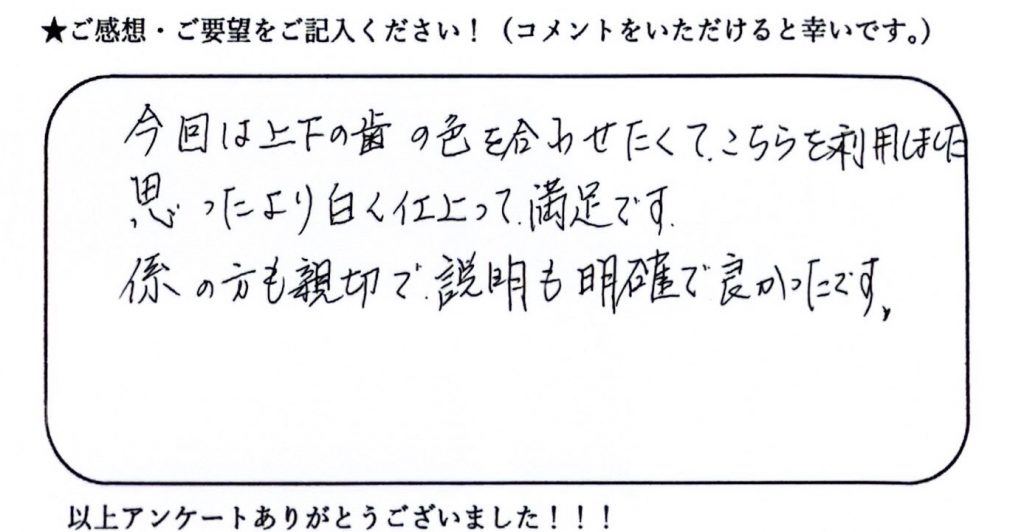 ★ご感想・ご要望をご記入ください！（コメントをいただけると幸いです。）
今回は上下の歯の色を合わせたくて、こちらを利用しました
思ったより白く仕上って、満足です。
係の方も親切で、説明も明確で良かったです。
以上アンケートありがとうございました！！！